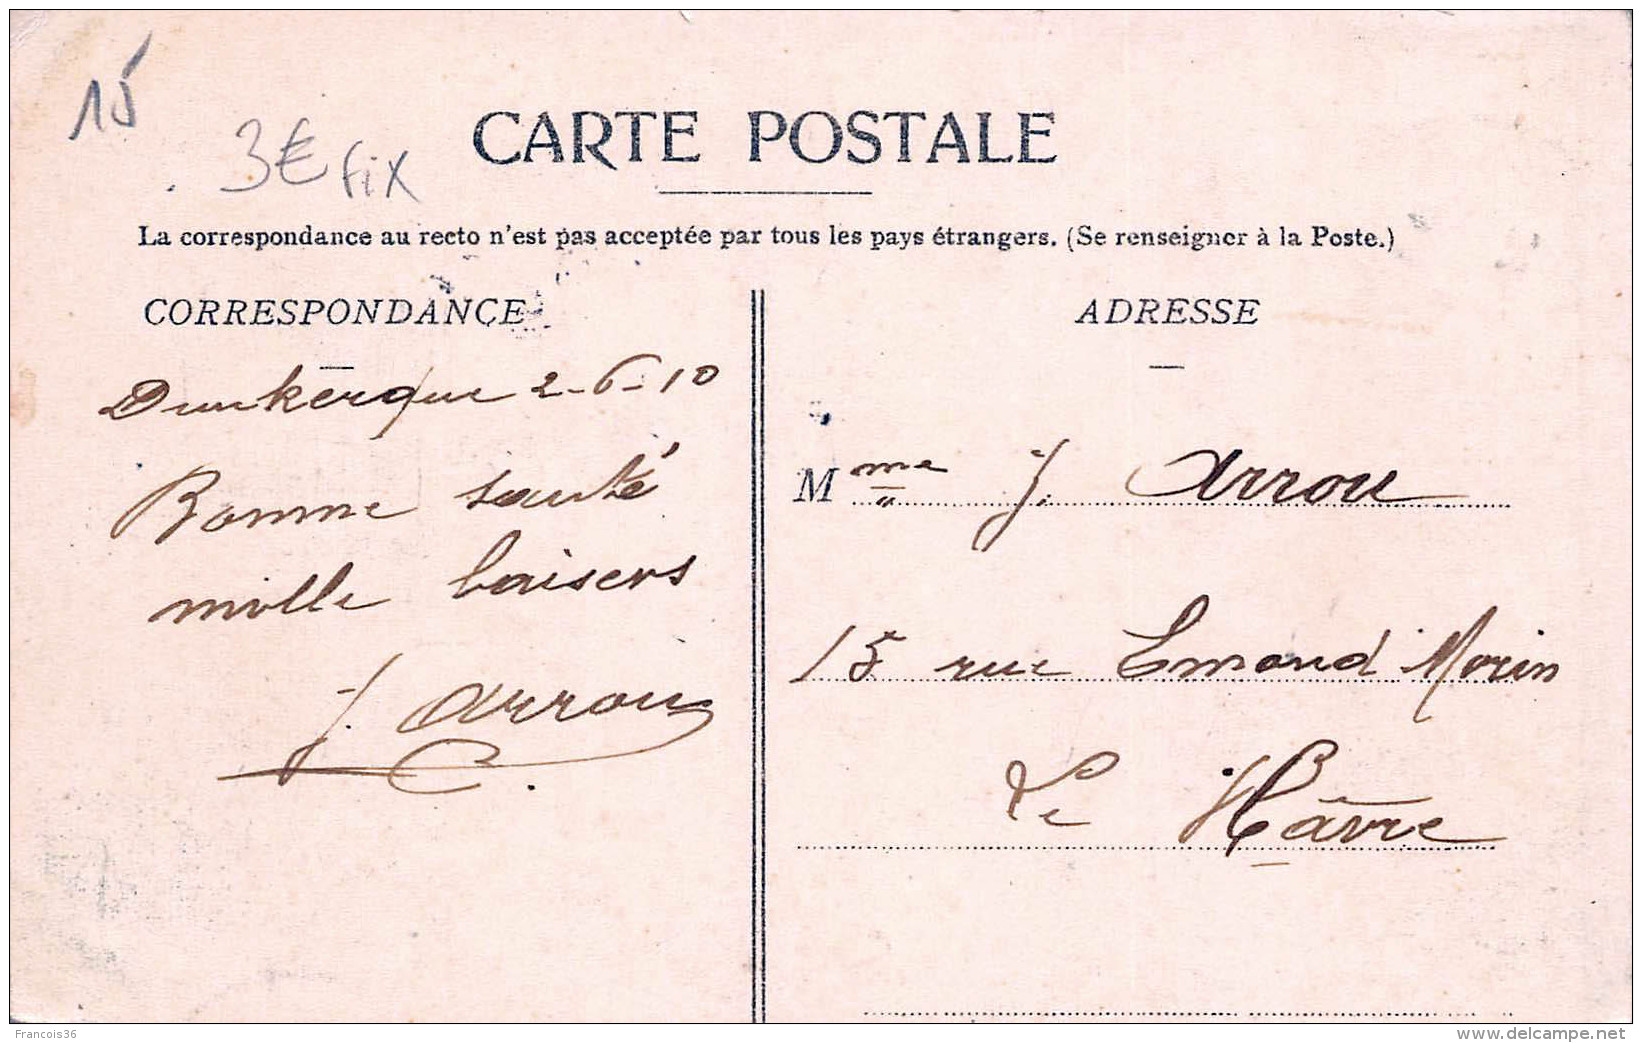 15
3€ fix
CARTE POSTALE
La correspondance au recto n'est pas acceptée par tous les pays étrangers. (Se renseigner à la Poste.)
CORRESPONDANCE
Dunkerque 2-6-10
Bonne santé
mille baisers
J. Arrou
ADRESSE
Mme J. Arrou
15 rue Emond Morin
Le Hâvre
Francois36
delcampe.net